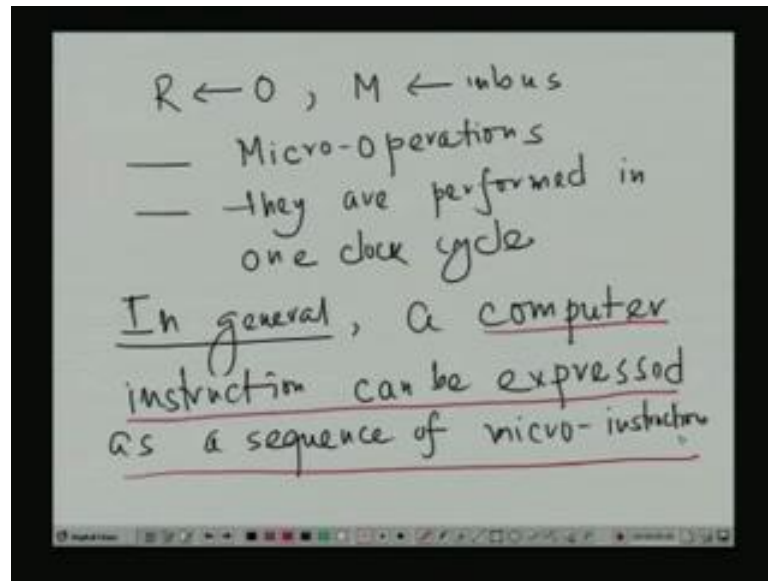 R ← 0 , M ← inbus
— Micro-Operations
— they are performed in
one clock cycle
In general, a computer
instruction can be expressed
as a sequence of micro-instructions